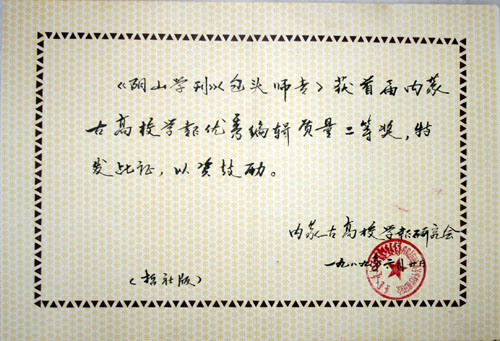 《阴山学刊》(包头师专)获首届内蒙
古高校学报优秀编辑质量二等奖,特
发此证,以资鼓励。
内蒙古高校学报研究会
一九八九年二月廿日
(哲社版)